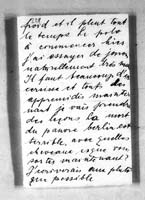 froid et il pleut tout
le temps le polo
à commencer hier
j'ai essayer de jouer
naturellement très ma
Il faut beaucoup d'
et tout de
apprendrai mainte
nant je vais prendre
des leçons La mort
du pauvre berlin est
terrible, avec quelles
chevaux est que
vous sortez maintenant?
J'écrirerais au plutôt
que possible